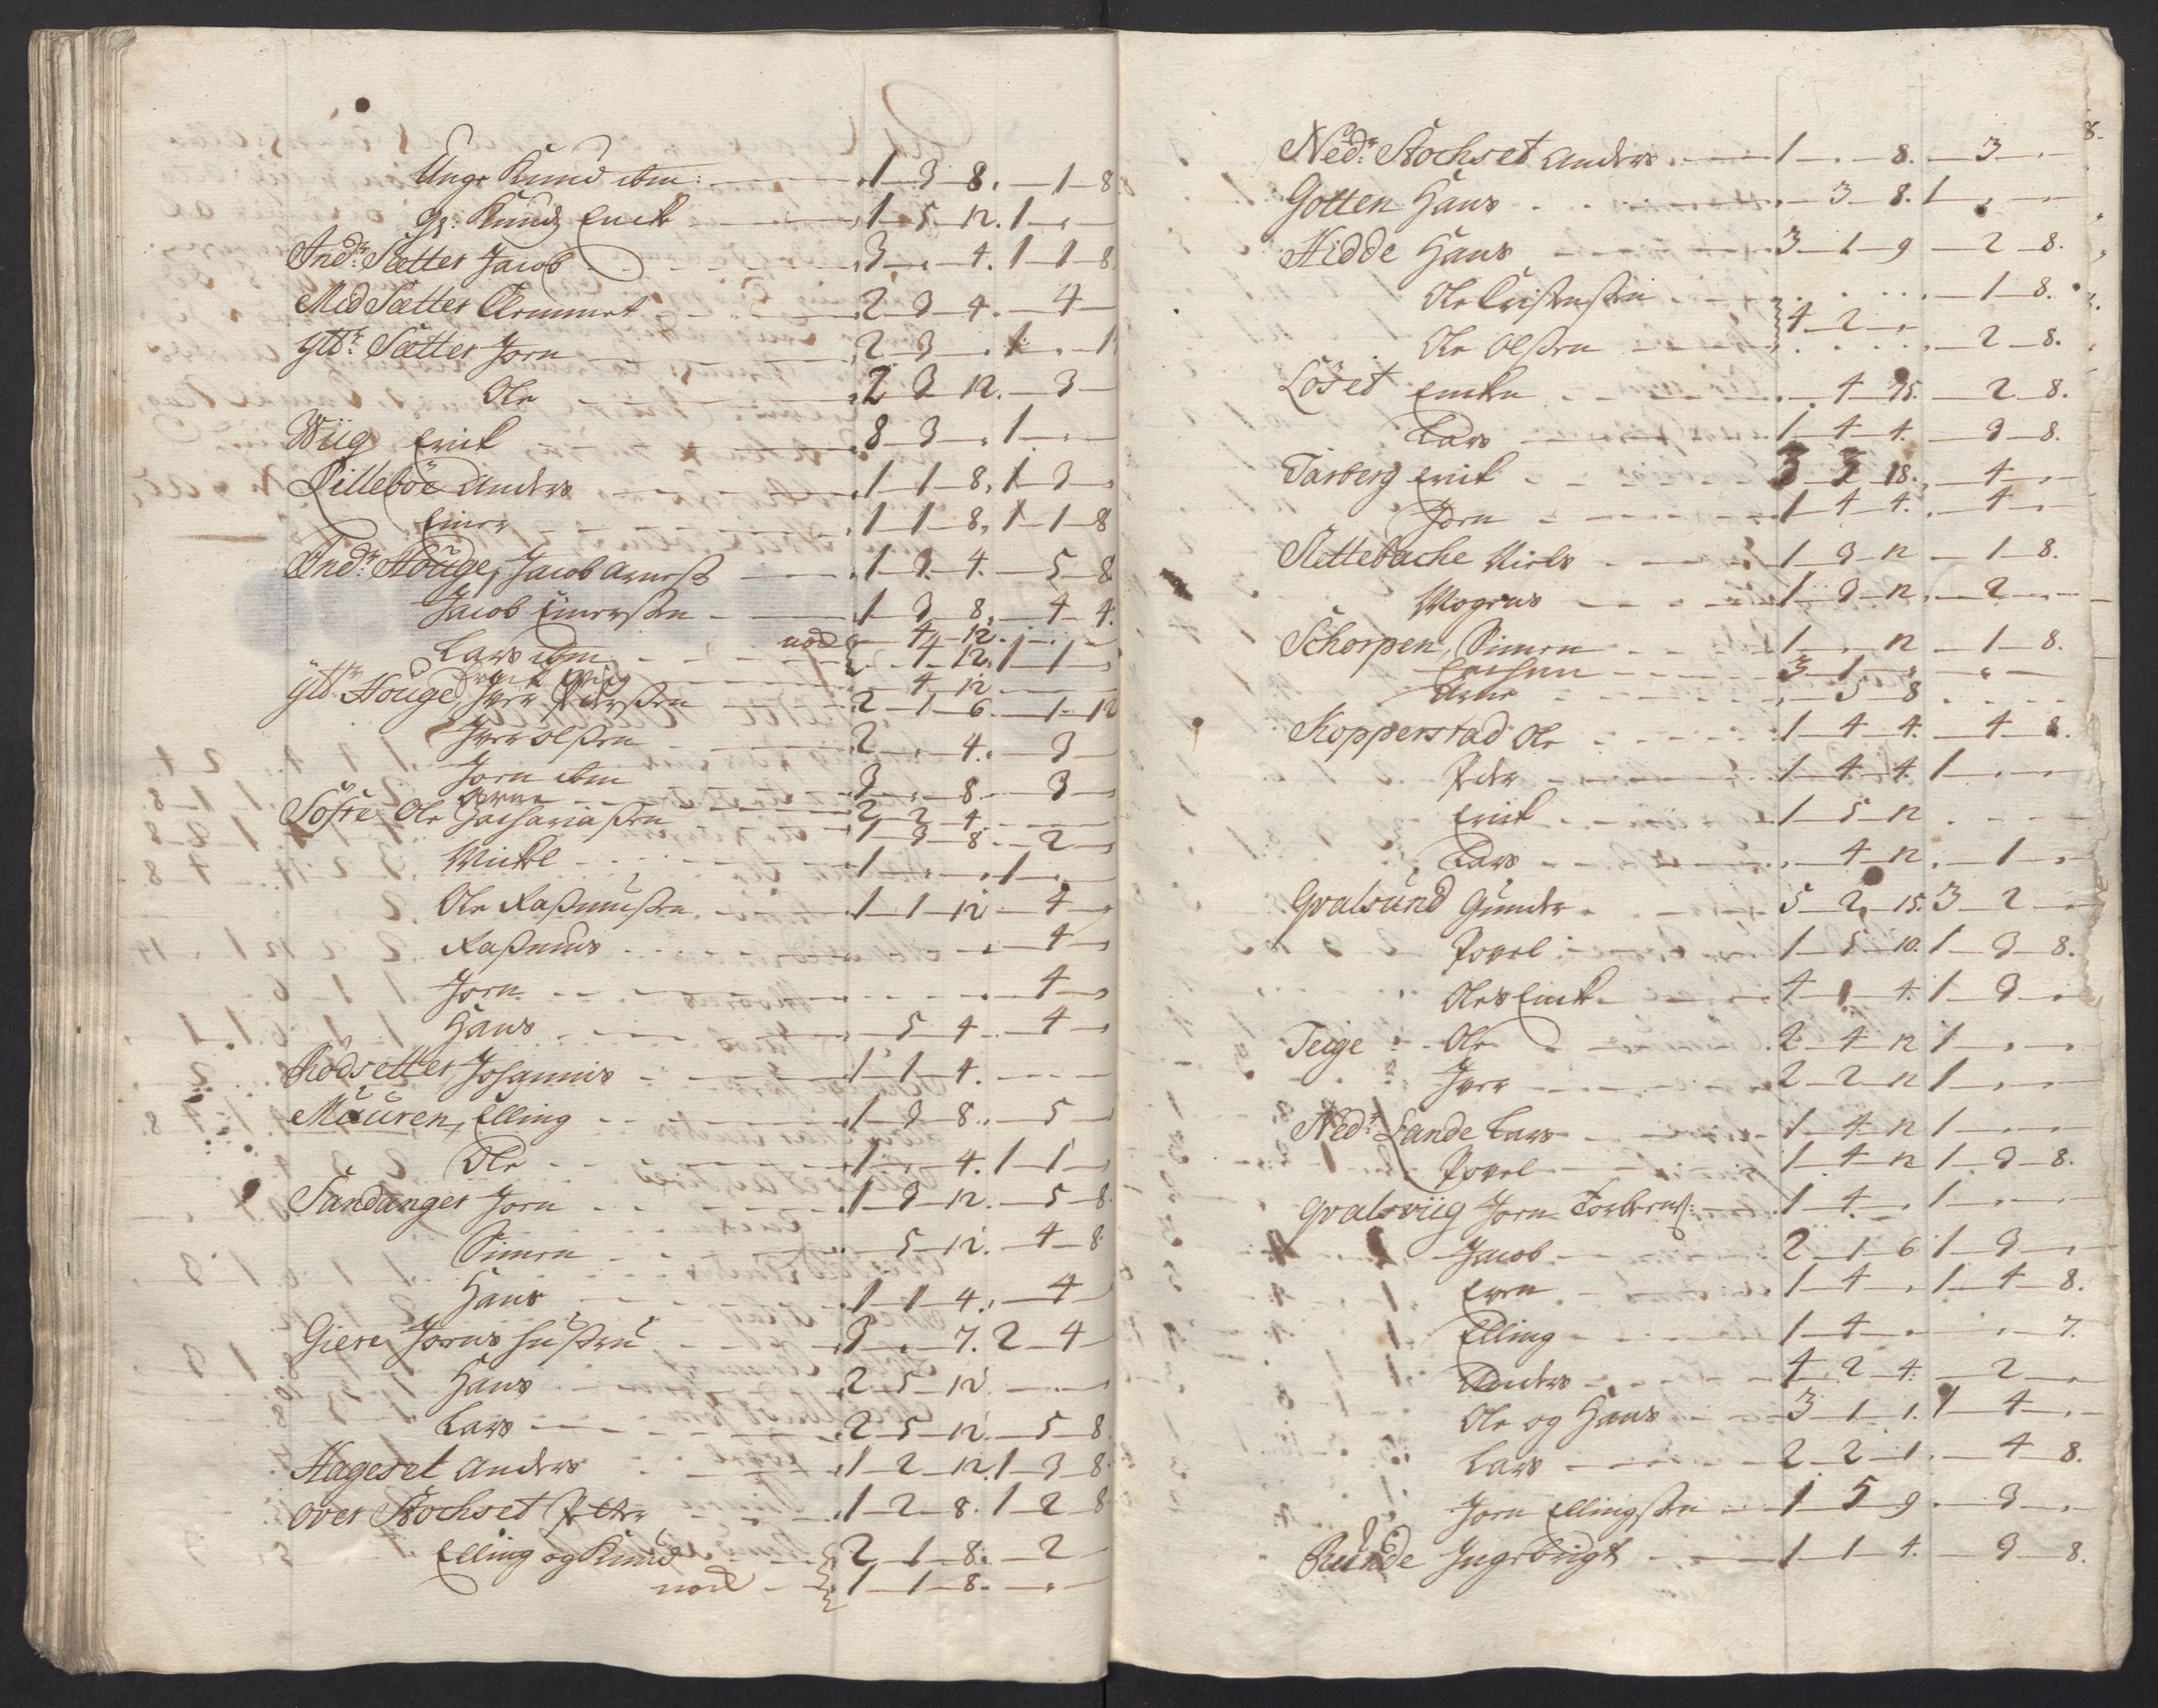 Unge Knud ibm: 1 - 3 - 8. - 1 - 8
gl: Knud Erick 1 - 5 - 12. 1 - " -
Indr. Sætter Jacob 3 - " - 4. 1 - 1 - 8
Mid Sætter Clemmet 2 - 3 - 4. - 4 -
Ytr. Sætter Jorn 2 - 3 - " 1 - " - 1
Ole 2 - 3 - 12. - 3 -
Wiig Erick 8 - 3 - " 1 - " -
Lilleböe Anders 1 - 1 - 8. 1 - 3 -
Einer 1 - 1 - 8. 1 - 1 - 8
Indr. Houge, Jacob Arnesß 1 - 3 - 4. - 5 - 8
Jacob Einersen 1 - 3 - 8. - 4 - 4.
Lars ibm nod - 4 - 12. - " -
- 1 - 12. 1 - 1 -
Erick Wiig - 4 - 12
Ytr. Houge, Iver Pedersen 2 - 1 - 6. - 1 - 12
Iver Olßen 2 - " - 4. - 3 -
Jorn ibm 3 - " - 8. - 3 -
Arne 2 - 2 - 4.
Söfre Ole Zachariaßen 1 - 3 - 8. - 2 -
Mickel 1 - " - " 1 - " -
Ole Raßmusen 1 - 1 - 12. - 4 -
Raßmus - 4 -
Jorn - 4 -
Hans - 5 - 4. - 4 -
Rödsetter Johannis 1 - 1 - 4.
Mauren, Elling 1 - 3 - 8. - 5 -
Ole 1 - " - 4. 1 - 1 -
Sandanger Jorn 1 - 3 - 12. - 5 - 8.
Simen - 5 - 12. - 4 - 8
Hans 1 - 1 - 4. - 4 -
Giere Jorns hustru 3 - " - 7. 2 - 4
Hans 2 - 5 - 12.
Lars 2 - 5 - 12. - 5 - 8.
Hageset Anders 1 - 2 - 12. 1 - 3 - 8.
Over Stochset Peder 1 - 2 - 8. 1 - 2 - 8.
Elling og Knud 2 - 1 - 8. - 2 -
nod 1 - 1 - 8. - " -
Nedr. Stochset Anders 1 - " - 8. - 3 - "
Gotten Hans - 3 - 8. 1 - " -
Hidde Hans 3 - 1 - 9 - 2 - 8.
Ole Cristensen - 1 - 8.
4 - 2 - "
Ole Olßen - 2 - 8.
Löset Encken - 4 - 15. - 2 - 8.
Lars 1 - 4 - 4. - 3 - 8.
Tarberg Erick 3 - 3 - 18. - 4 - "
Jorn 1 - 4 - 4. - 4 - "
Stettebache Niels 1 - 3 - 12 - 1 - 8.
Mogens 1 - 3 - 12. - 2 - "
Schorpen, Simen 1 - " - 12 - 1 - 8.
3 - 1 - " - " -
Arne - 5 - 8
Kopperstad Ole 1 - 4 - 4. - 4 - 8.
Peder 1 - 4 - 4. 1 - " -
Erick 1 - 5 - 12
Lars - 4 - 12. - 1 - "
Qvalsund Gunder 5 - 2 - 15. 3 - 2 -
Povel 1 - 5 - 10. 1 - 3 - 8.
Oles Enck 4 - 1 - 4. 1 - 3 - "
Teige Ole 2 - 4 - 12 1 - " -
Iver 2 - 2 - 12 1 - " -
Nedr. Lande Lars 1 - 4 - 12 1 - " -
Povel 1 - 4 - 12 1 - 3 - 8.
Qvalsviig Jorn Torbernß: 1 - 4 - " 1 - " -
Jacob 2 - 1 - 6 1 - 3 - "
Even 1 - 4 - " 1 - 4 - 8.
Elling 1 - 4 - " - " - 7.
Anders 4 - 2 - 4. - 2 - "
Ole og Hans 3 - 1 - 1. 1 - 4 - "
Lars 2 - 2 - 1. - 4 - 8.
Jorn Ellingßen 1 - 5 - 9. - 3 - "
Runde Ingebrigt 1 - 1 - 4. - 3 - 8.